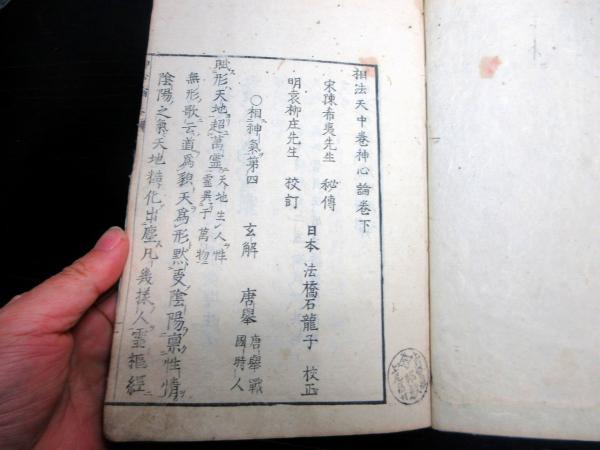 相法天中卷神心論卷下
宋陳希夷先生 秘傳
明袁柳庄先生 校訂
日本 法橋石龍子 校正
○相神氣第四 玄解 唐舉 唐舉戰國時人
賦形天地超萬靈 天地生人性靈異于萬物
無形歌云道爲貌天爲形默受陰陽禀性情
陰陽之氣天地精化出塵凡幾樣人靈樞經